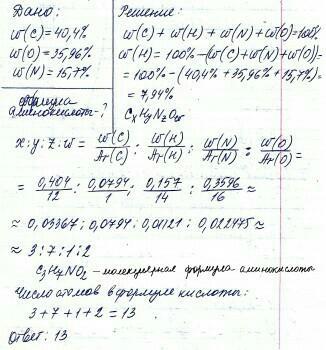 Дано:
w(C)=40,4%
w(O)=35,96%
w(N)=15,77%
Формула
аминокислоты-?
Решение:
w(C)+w(H)+w(N)+w(O)=100%
w(H)=100%-(w(C)+w(N)+w(O))=
=100%-(40,4%+35,96%+15,7%)=
=7,94%
CxHyNzOw
x:y:z:w = w(C)/Ar(C) : w(H)/Ar(H) : w(N)/Ar(N) : w(O)/Ar(O) =
= 0,404/12 : 0,0794/1 : 0,157/14 : 0,3596/16 ≈
≈ 0,03367 : 0,0794 : 0,01121 : 0,022475 ≈
≈ 3:7:1:2
C3H7NO2 - молекулярная формула аминокислоты
Число атомов в формуле кислоты:
3+7+1+2=13.
Ответ: 13